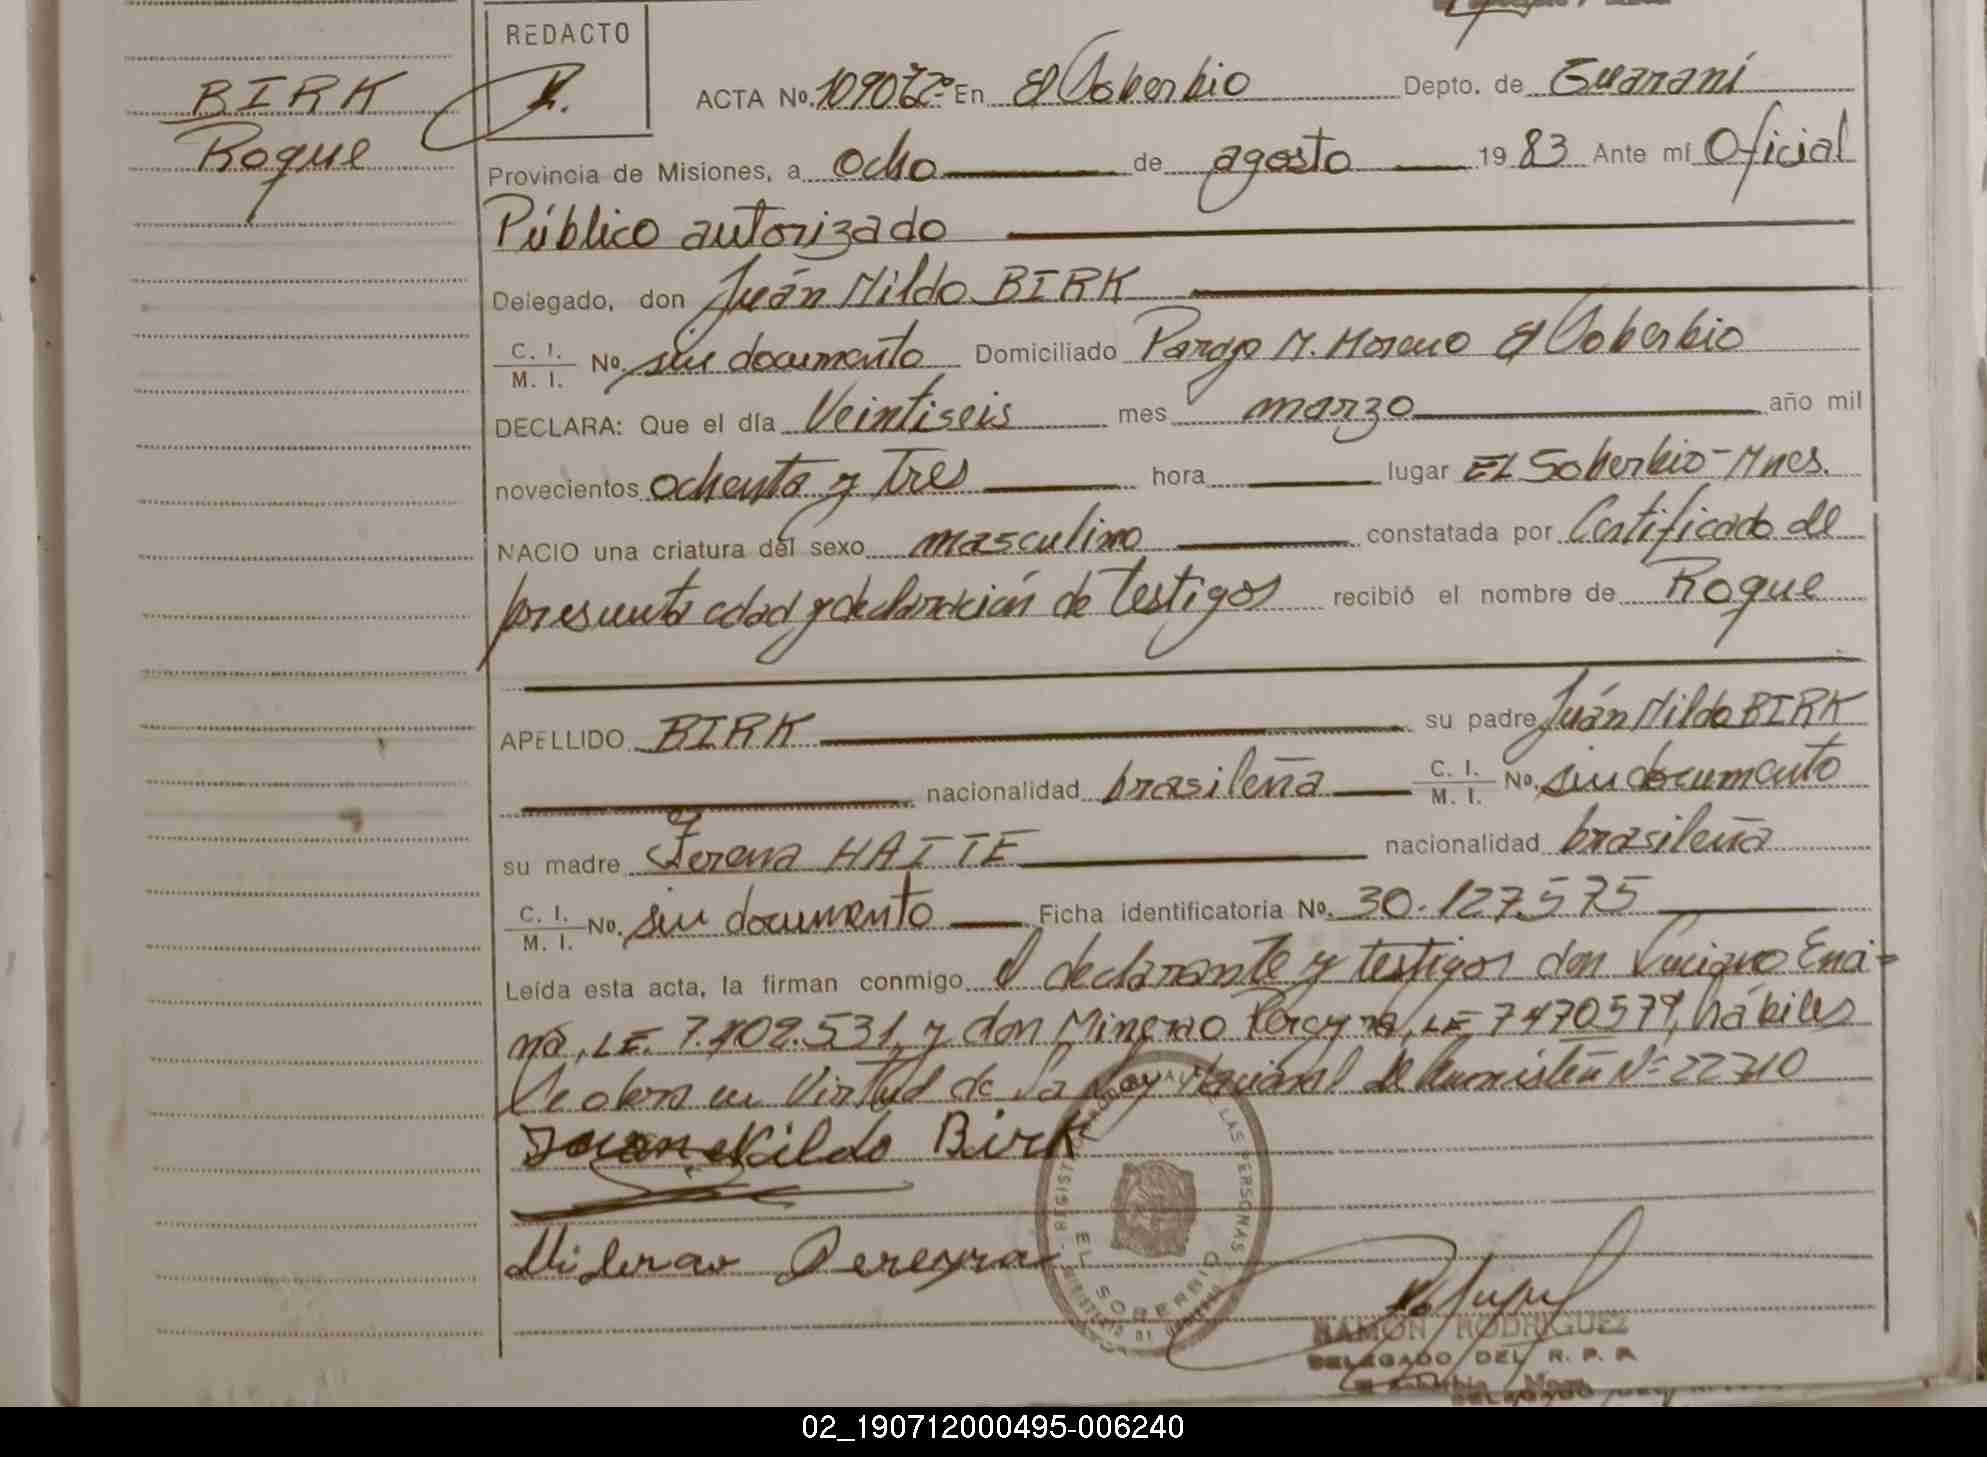 BIRK
Roque
REDACTO
ACTA No. En El Soberbio Depto. de Guaraní
Provincia de Misiones, a ocho de agosto 19 83 Ante mí Oficial
Público autorizado
Delegado, don Juán Nildo BIRK
C. I. M. I. No. sin documento Domiciliado Paraje M. Moreno El Soberbio
DECLARA: Que el día Veintiseis mes marzo año mil
novecientos ochenta y tres hora lugar EL Soberbio-Mnes.
NACIO una criatura del sexo masculino constatada por Certificado de
presunta edad y declaración de testigos recibió el nombre de Roque
APELLIDO BIRK su padre Juán Nildo BIRK
nacionalidad brasileña C. I. M. I. No. sin documento
su madre HATTE nacionalidad brasileña
C. I. M. I. No. sin documento Ficha identificatoria No. 30.127.575
Leída esta acta, la firman conmigo el declarante y testigos don Luciano
LE. 7.402.531, y don Pereyra, LE 7470579, hábiles
Se labra en Virtud de la Ley Nacional de Amnistía Nº 22710
Juan Nildo Birk
Pereyra
REGISTRO PROVINCIAL DE LAS PERSONAS
EL SOBERBIO
MINISTERIO DE GOBIERNO
RAMON RODRIGUEZ
DELEGADO DEL R. P. P.
02_190712000495-006240